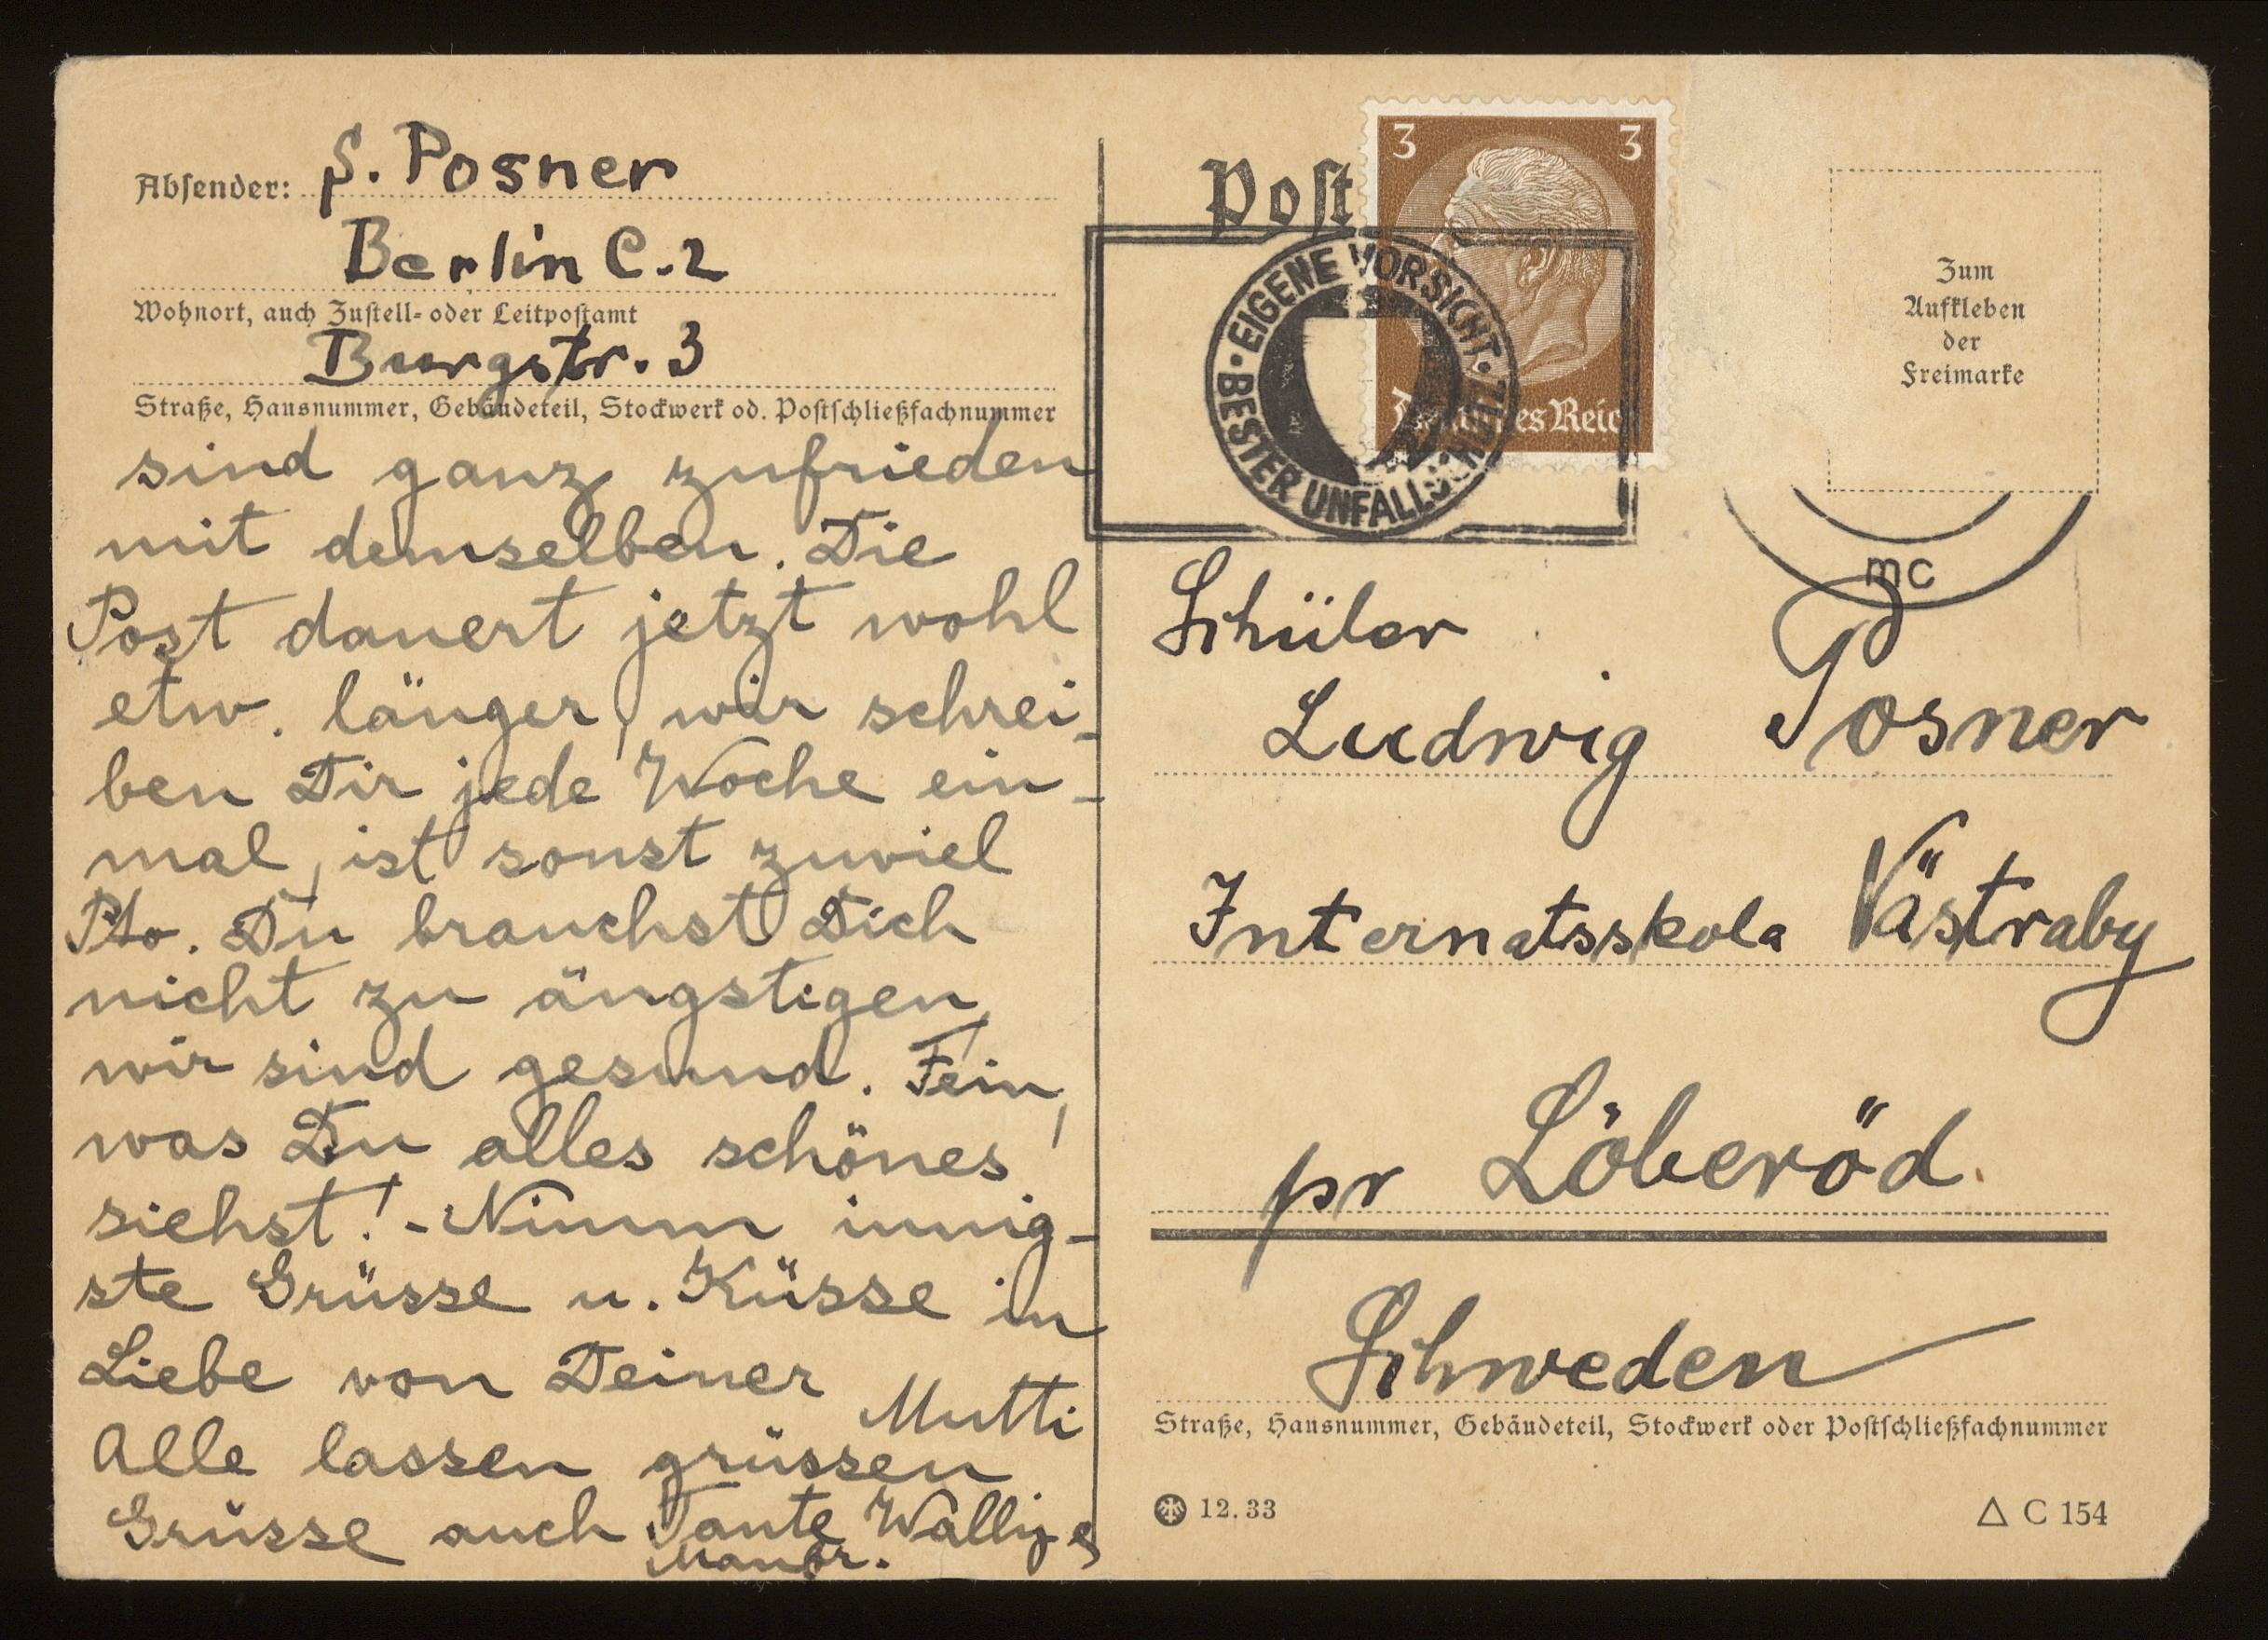 Absender: S. Posner
Berlin C.2
Wohnort, auch Zustell- oder Leitpostamt
Burgstr. 3
Straße, Hausnummer, Gebäudeteil, Stockwerk od. Postschließfachnummer
sind ganz zufrieden
mit demselben. Die
Post dauert jetzt wohl
etw. länger, wir schrei-
ben Dir jede Woche ein-
mal, ist sonst zuviel
Pto. Du brauchst Dich
nicht zu ängstigen,
wir sind gesund. Fein,
was Du alles schönes
siehst! - Nimm innig-
ste Grüsse u. Küsse in
Liebe von Deiner
Mutti
Alle lassen grüssen
Grüsse auch Tante Wally
Post
3 3
Deutsches Reich
EIGENE VORSICHT
BESTER UNFALLSCHUTZ
Zum
Aufkleben
der
Freimarke
mc
Schüler
Ludwig Posner
Internatsskola Västraby
pr Löberöd.
Schweden
Straße, Hausnummer, Gebäudeteil, Stockwerk oder Postschließfachnummer
12.33
△ C 154